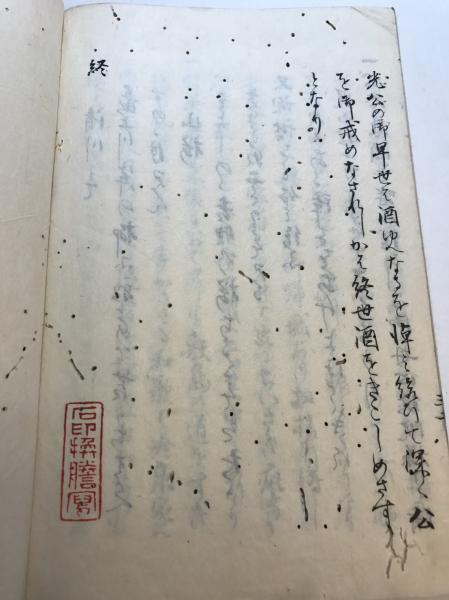 光公の御早世も酒ゆへなるを悼み給ひて深く公
を御戒めなされしかは終世酒をきこしめさす
となり
終
石印換謄写